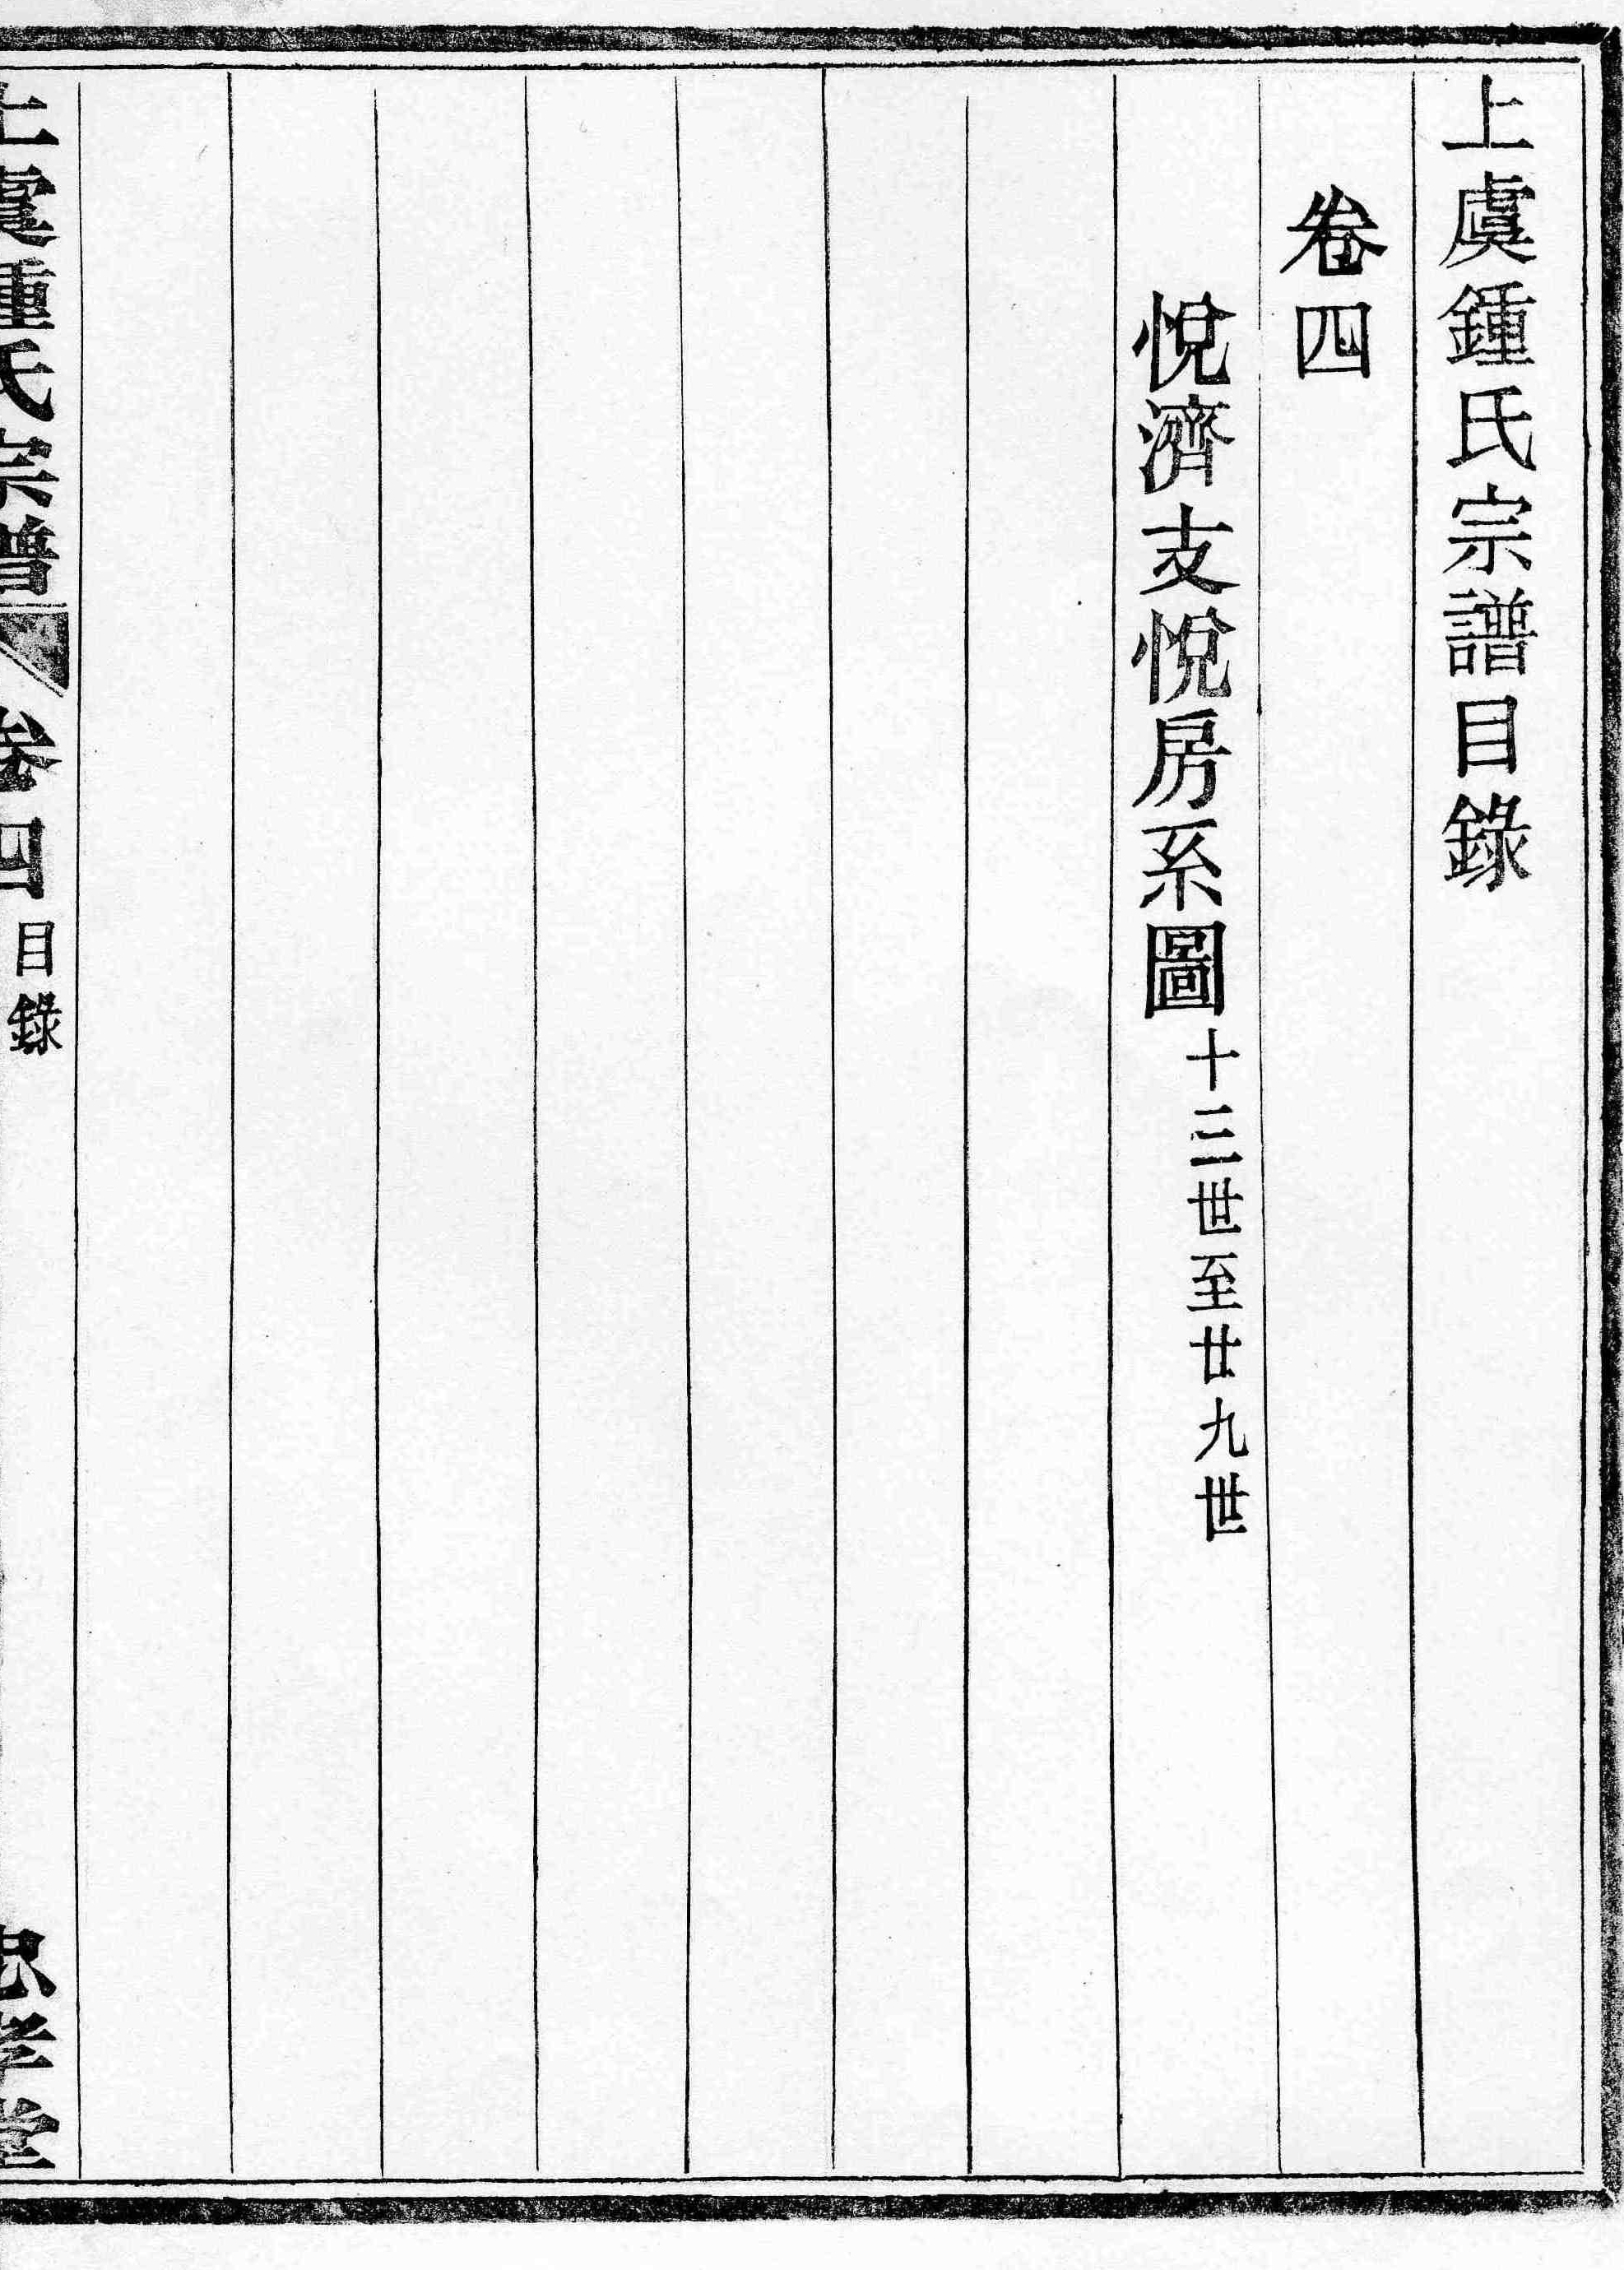 上虞鍾氏宗譜目錄
卷四
悅濟支悅房系圖十三世至廿九世
上虞鍾氏宗譜 卷四 目錄 忠孝堂